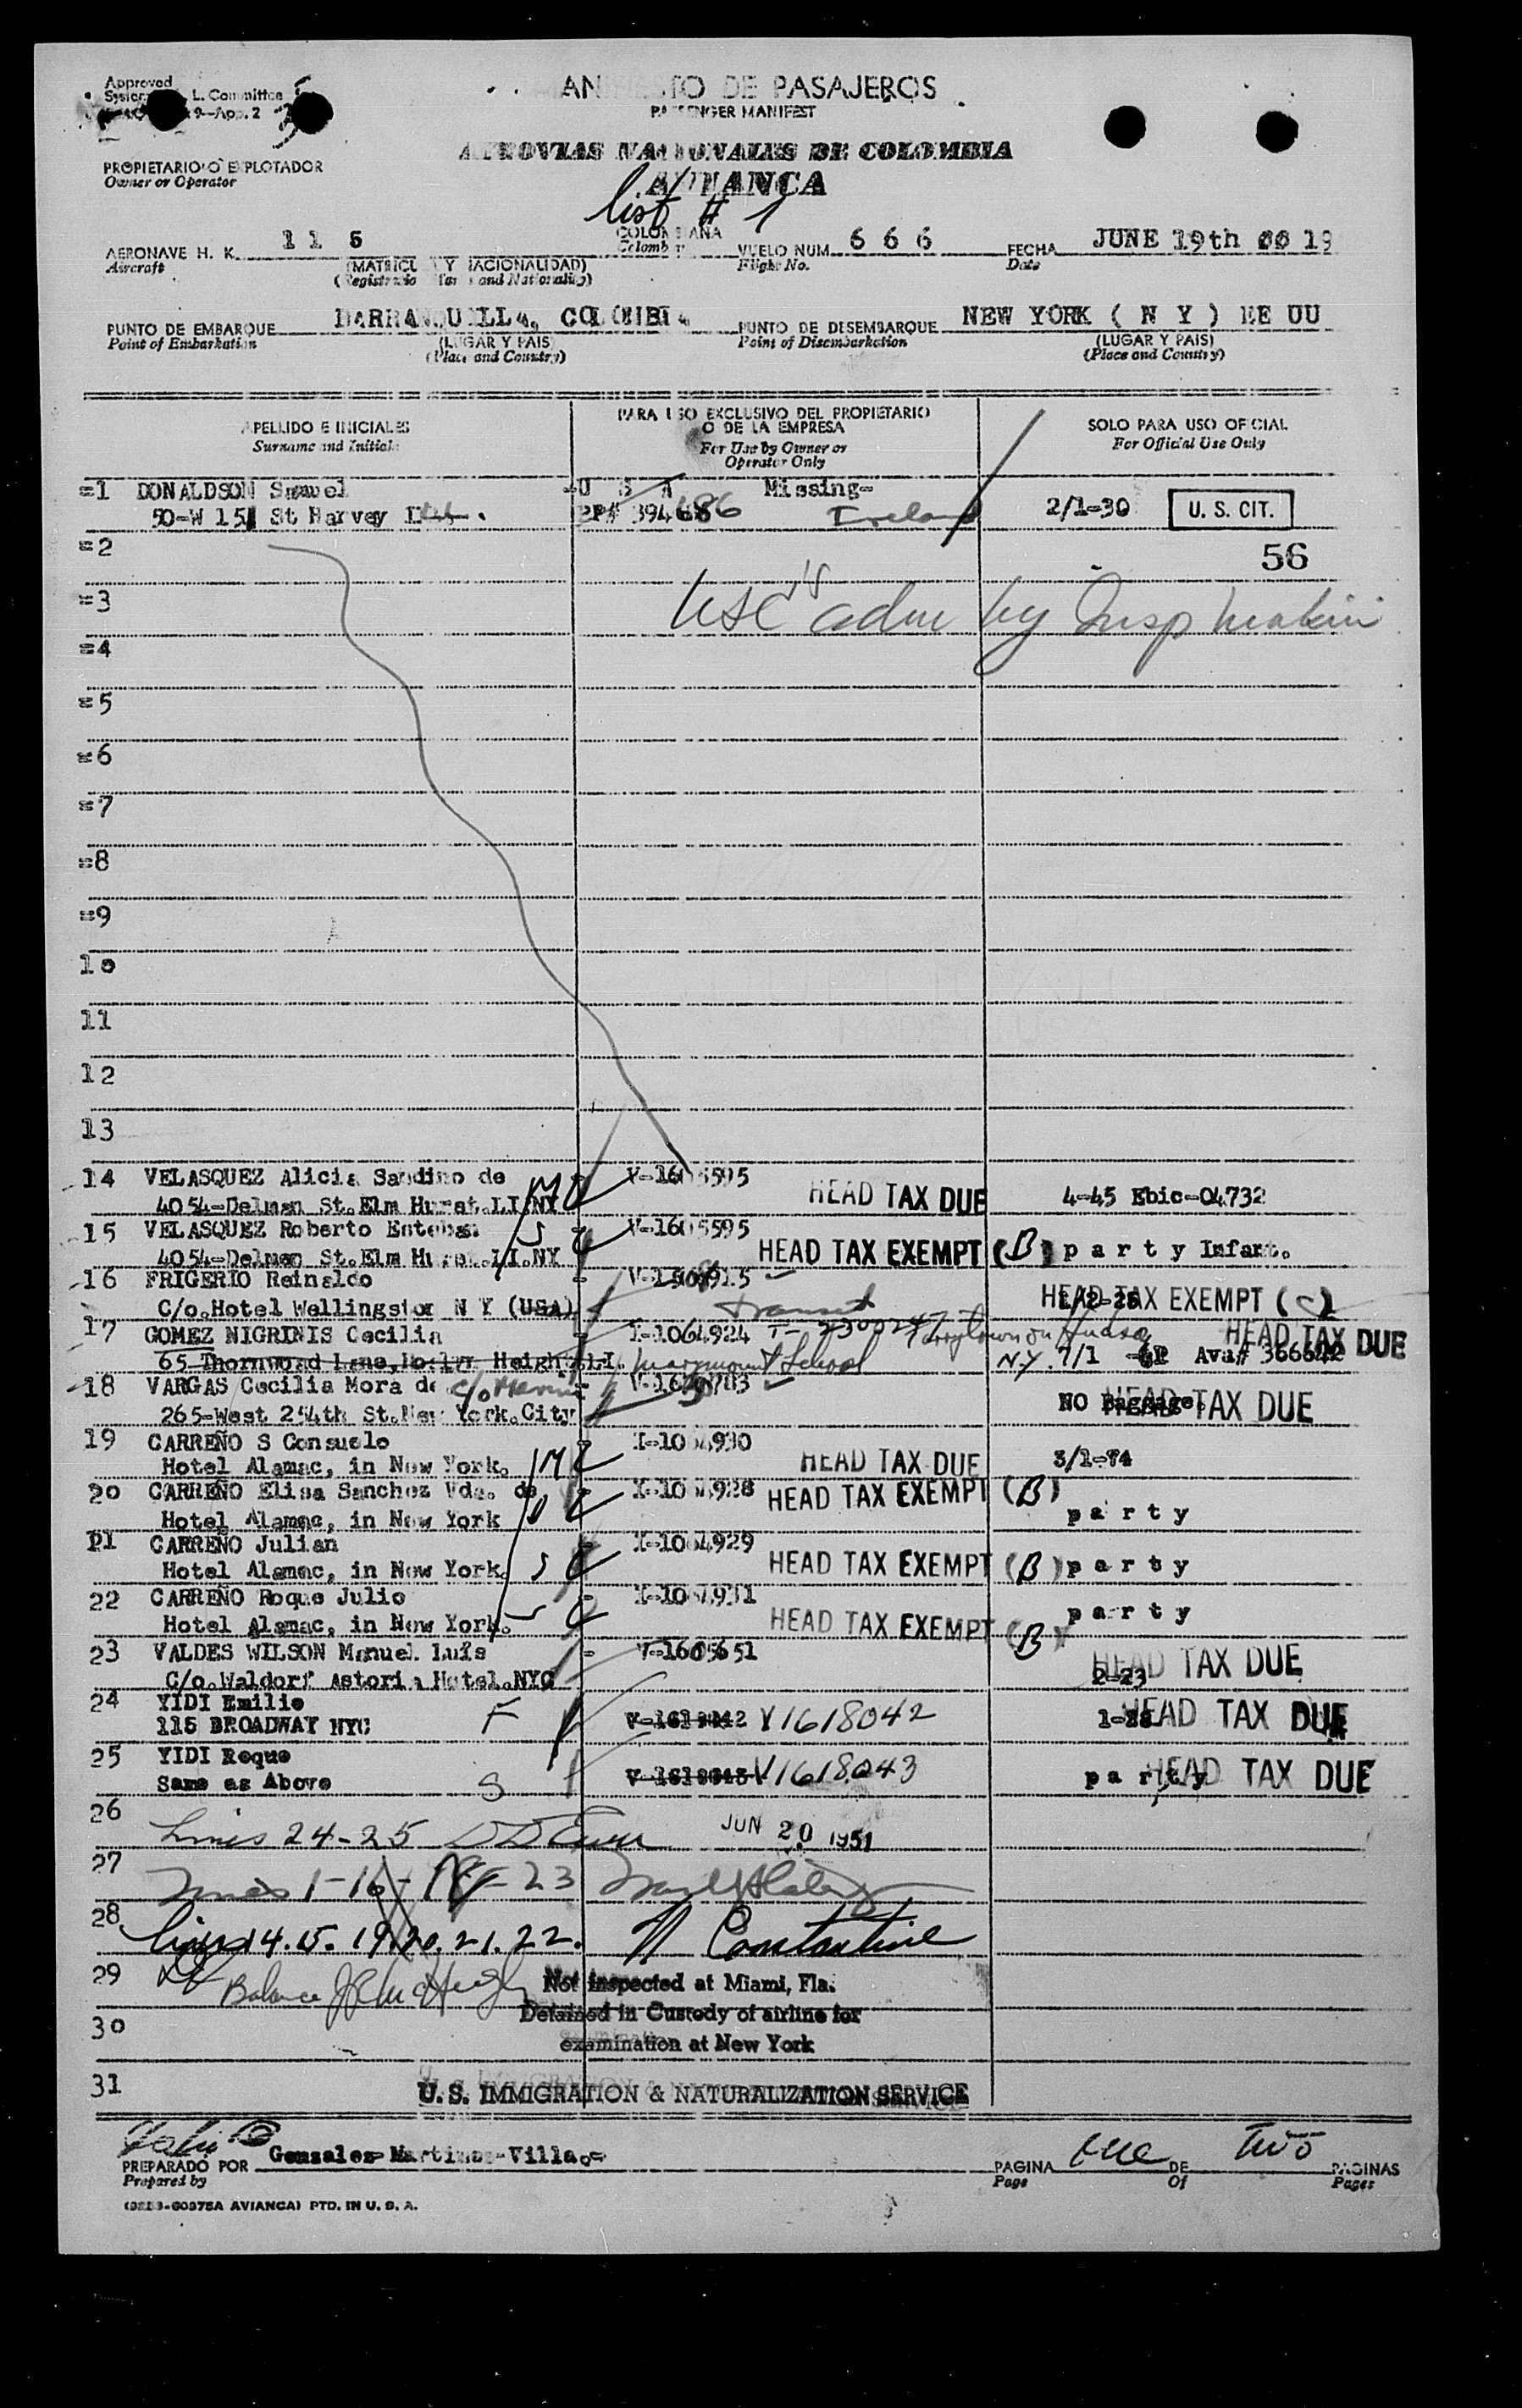 Approved
L. Committee
9-App. 2
DE PASAJEROS
PASSENGER MANIFEST
PROPIETARIO O EXPLOTADOR
Owner or Operator
AEROVIAS NACIONALES DE COLOMBIA
AVIANCA
list # 1
AERONAVE H. K. 1 1 5 COLOMBIANA VUELO NUM. 6 6 6 FECHA JUNE 19th 19
Aircraft Flight No. Date
(MATRICULA Y NACIONALIDAD)
(Registration Marks and Nationality)
PUNTO DE EMBARQUE BARRANQUILLA, COLOMBIA PUNTO DE DESEMBARQUE NEW YORK ( N Y ) EE UU
Point of Embarkation Point of Disembarkation
(LUGAR Y PAIS) (LUGAR Y PAIS)
(Place and Country) (Place and Country)
APELLIDO E INICIALES PARA USO EXCLUSIVO DEL PROPIETARIO O DE LA EMPRESA SOLO PARA USO OFICIAL
Surname and Initials For Use by Owner or Operator Only For Official Use Only
=1 DONALDSON Samuel =U S A Missing=
50-W 151 St Harvey PP# 394686 Ireland 2/1-30 U. S. CIT.
=2 56
=3 USC's adm by Insp
=4
=5
=6
=7
=8
=9
10
11
12
13
14 VELASQUEZ Alicia Sandino de V-1605595
4054-Delman St.Elm Hurst.LI.NY HEAD TAX DUE 4-45 Ebic-04732
15 VELASQUEZ Roberto Esteban V-1605595
4054-Delman St.Elm Hurst.LI.NY HEAD TAX EXEMPT (B) party Infant.
16 FRIGERIO Reinaldo
C/o.Hotel Wellingston N Y (USA) Transit HEAD TAX EXEMPT (C)
17 GOMEZ NIGRINIS Cecilia I-1064924 HEAD TAX DUE
65 Thornwood Lane, Roslyn Heights LI. Marymount School N.Y. 7/1
18 VARGAS Cecilia Mora de
265-West 254th St.New York.City NO Baggages HEAD TAX DUE
19 CARREÑO S Consuelo I-1064930
Hotel Alamac, in New York. M HEAD TAX DUE 3/1-74
20 CARREÑO Elisa Sanchez Vda. de I-1064928 HEAD TAX EXEMPT (B)
Hotel Alamac, in New York party
21 CARREÑO Julian I-1064929
Hotel Alamac, in New York. S HEAD TAX EXEMPT (B) party
22 CARREÑO Roque Julio I-1064931
Hotel Alamac, in New York. S HEAD TAX EXEMPT (B) party
23 VALDES WILSON Manuel Luis V-1605651
C/o.Waldorf Astoria Hotel.NYC HEAD TAX DUE 2-23
24 YIDI Emilio
115 BROADWAY NYC F V1618042 HEAD TAX DUE
25 YIDI Roque
Same as Above S V1618043 party HEAD TAX DUE
26 Lines 24-25 JUN 20 1951
27 Lines 1-16- 23
28 Lines 14.15.19.20.21.22. Constantine
29 Balance Not inspected at Miami, Fla.
Detained in Custody of airline for
30 examination at New York
31 U. S. IMMIGRATION & NATURALIZATION SERVICE
PREPARADO POR Gonzales-Martinez-Villa.= PAGINA One DE Two PAGINAS
Prepared by Page Of Pages
AVIANCA) PTD. IN U. S. A.